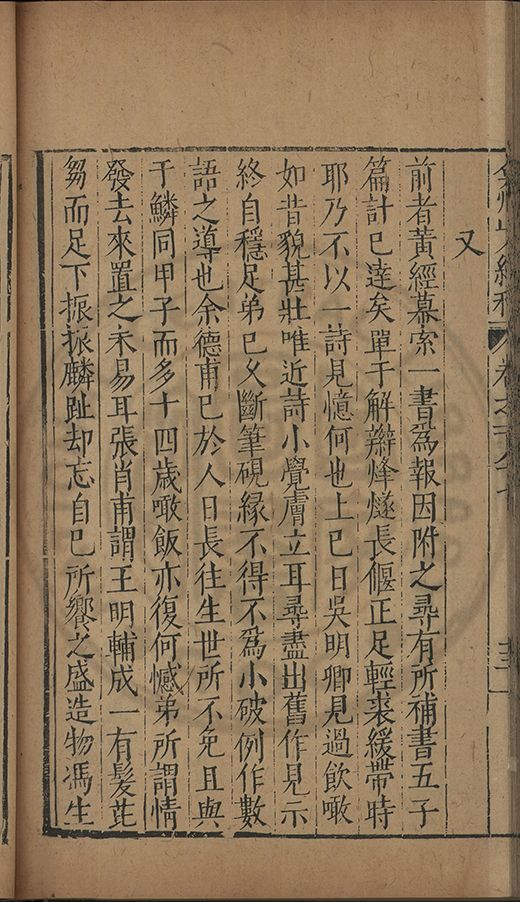 又
前者黃經幕索一書爲報因附之尋有所補書五子
篇計已達矣單于解辮烽燧長偃正足輕裘緩帶時
耶乃不以一詩見憶何也上巳日吳明卿見過飲噉
如昔貌甚壯唯近詩小覺膚立耳尋盡出舊作見示
終自穩足弟已乂斷筆硯緣不得不爲小破例作數
語之導也余德甫已於人日長往生世所不免且與
于鱗同甲子而多十四歲噉飯亦復何憾弟所謂情
發去來置之未易耳張肖甫謂王明輔成一有髮芘
芻而足下振振麟趾却忘自己所饗之盛造物馮生